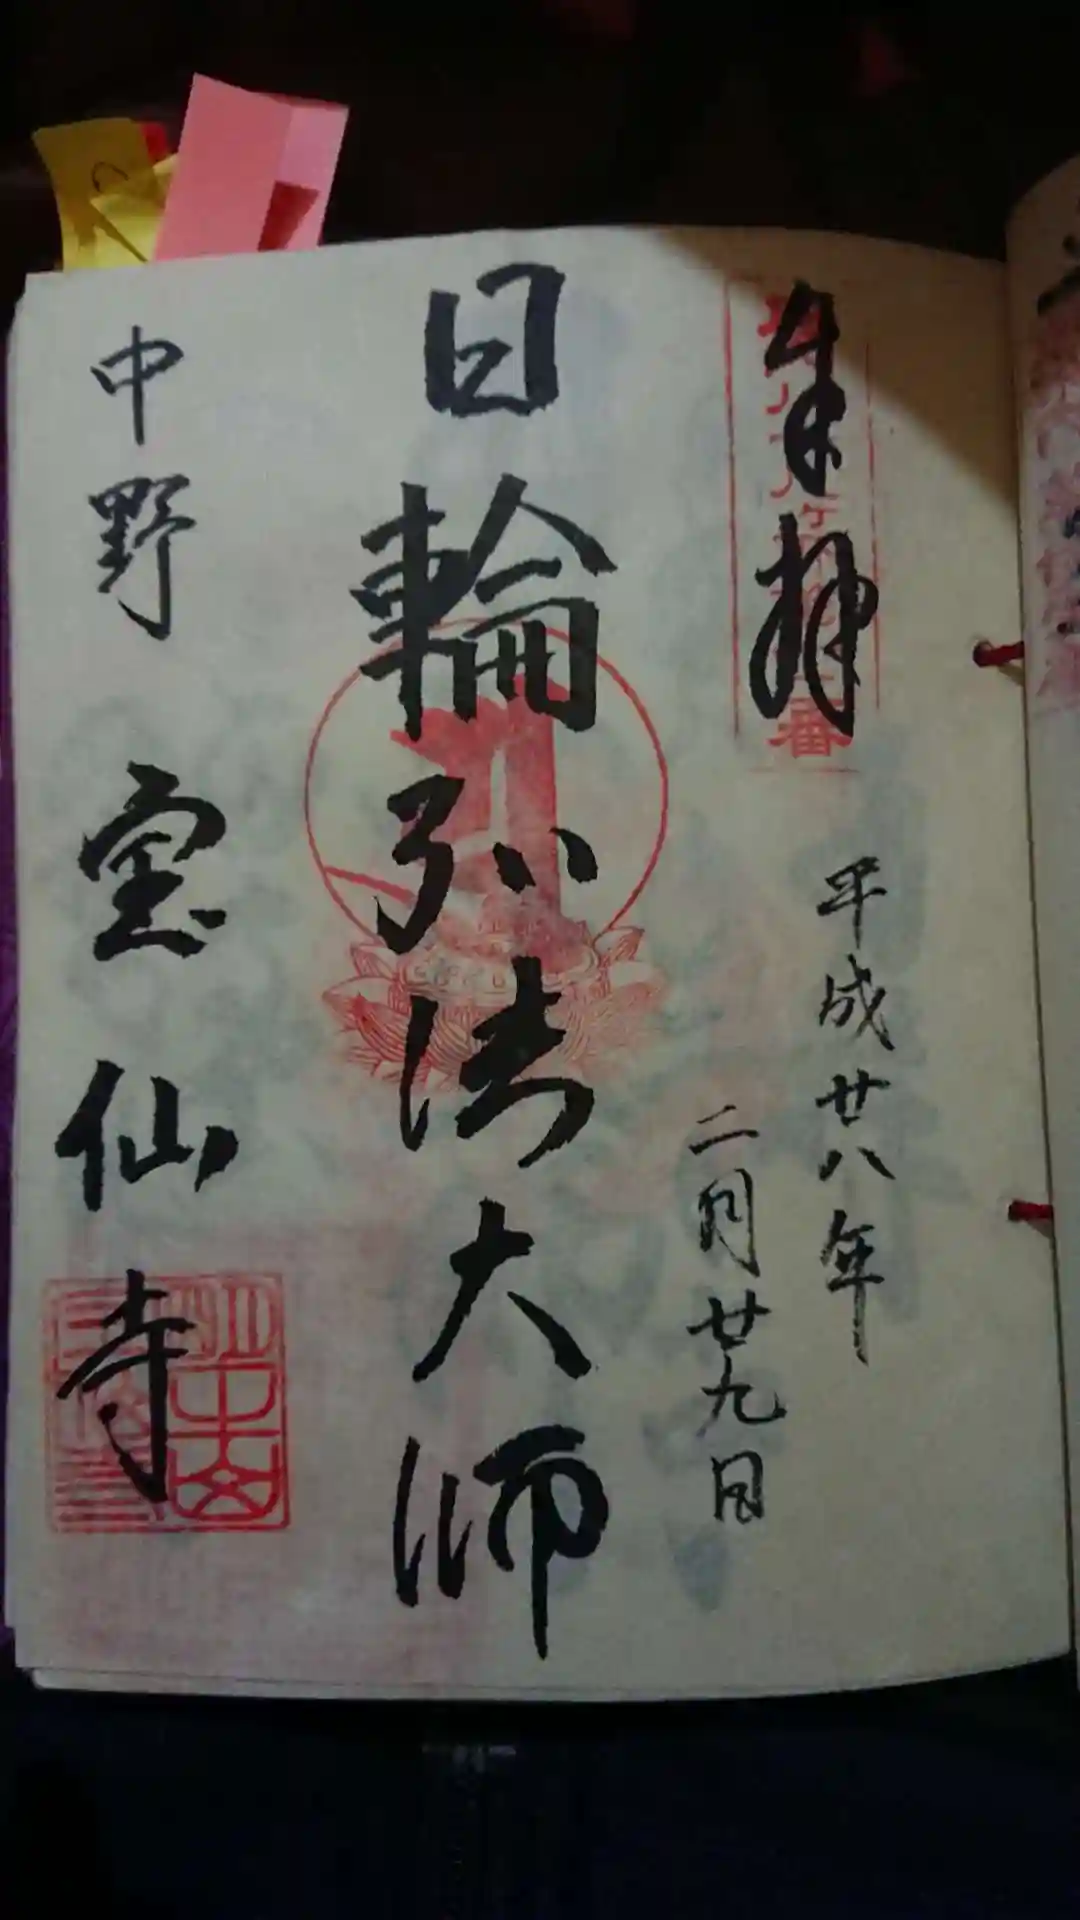 奉拝
平成廿八年
二月廿九日
日輪弘法大師
中野 宝仙寺
番